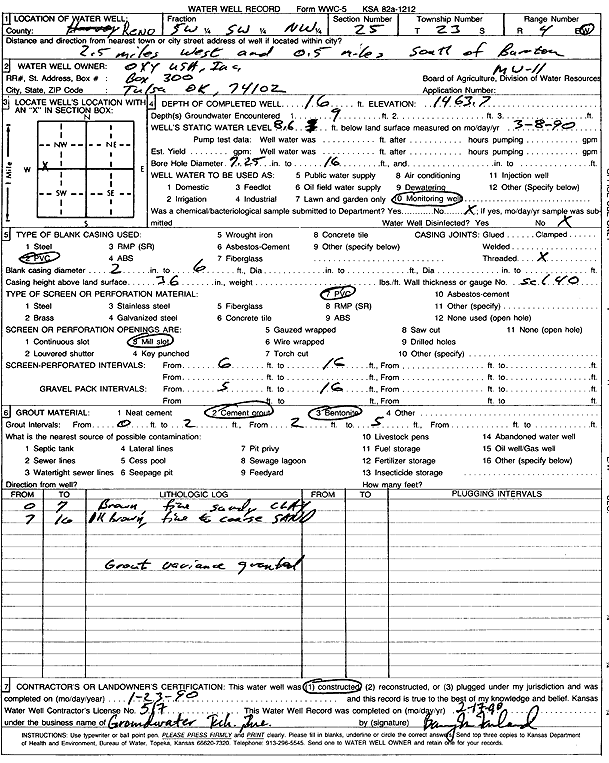 WATER WELL RECORD Form WWC-5 KSA 82a-1212
1 LOCATION OF WATER WELL: Fraction Section Number Township Number Range Number
County: Harvey RENO SW ¼ SW ¼ NWC ¼ 25 T 23 S R 4 E/W
Distance and direction from nearest town or city street address of well if located within city?
2.5 miles West and 0.5 miles South of Burrton
2 WATER WELL OWNER: OXY USA, Inc. MW-11
RR#, St. Address, Box # : Box 300 Board of Agriculture, Division of Water Resources
City, State, ZIP Code : Tulsa OK, 74102 Application Number:
3 LOCATE WELL'S LOCATION WITH AN "X" IN SECTION BOX:
N
NW NE
W X E
SW SE
S
1 Mile
4 DEPTH OF COMPLETED WELL 16 ft. ELEVATION: 1463.7
Depth(s) Groundwater Encountered 1. 9 ft. 2. ft. 3. ft.
WELL'S STATIC WATER LEVEL 8.6 ft. below land surface measured on mo/day/yr 3-8-90
Pump test data: Well water was ft. after hours pumping gpm
Est. Yield gpm: Well water was ft. after hours pumping gpm
Bore Hole Diameter 7.25 in. to 16 ft., and in. to ft.
WELL WATER TO BE USED AS: 5 Public water supply 8 Air conditioning 11 Injection well
1 Domestic 3 Feedlot 6 Oil field water supply 9 Dewatering 12 Other (Specify below)
2 Irrigation 4 Industrial 7 Lawn and garden only 10 Monitoring well
Was a chemical/bacteriological sample submitted to Department? Yes No X; If yes, mo/day/yr sample was submitted
Water Well Disinfected? Yes No X
5 TYPE OF BLANK CASING USED: 5 Wrought iron 8 Concrete tile CASING JOINTS: Glued Clamped
1 Steel 3 RMP (SR) 6 Asbestos-Cement 9 Other (specify below) Welded
2 PVC 4 ABS 7 Fiberglass Threaded X
Blank casing diameter 2 in. to 6 ft., Dia in. to ft., Dia in. to ft.
Casing height above land surface 36 in., weight lbs./ft. Wall thickness or gauge No. Sch 40
TYPE OF SCREEN OR PERFORATION MATERIAL: 7 PVC 10 Asbestos-cement
1 Steel 3 Stainless steel 5 Fiberglass 8 RMP (SR) 11 Other (specify)
2 Brass 4 Galvanized steel 6 Concrete tile 9 ABS 12 None used (open hole)
SCREEN OR PERFORATION OPENINGS ARE: 5 Gauzed wrapped 8 Saw cut 11 None (open hole)
1 Continuous slot 3 Mill slot 6 Wire wrapped 9 Drilled holes
2 Louvered shutter 4 Key punched 7 Torch cut 10 Other (specify)
SCREEN-PERFORATED INTERVALS: From 6 ft. to 16 ft., From ft. to ft.
From ft. to ft., From ft. to ft.
GRAVEL PACK INTERVALS: From 5 ft. to 16 ft., From ft. to ft.
From ft. to ft., From ft. to ft.
6 GROUT MATERIAL: 1 Neat cement 2 Cement grout 3 Bentonite 4 Other
Grout Intervals: From 0 ft. to 2 ft., From 2 ft. to 5 ft., From ft. to ft.
What is the nearest source of possible contamination: 10 Livestock pens 14 Abandoned water well
1 Septic tank 4 Lateral lines 7 Pit privy 11 Fuel storage 15 Oil well/Gas well
2 Sewer lines 5 Cess pool 8 Sewage lagoon 12 Fertilizer storage 16 Other (specify below)
3 Watertight sewer lines 6 Seepage pit 9 Feedyard 13 Insecticide storage
Direction from well? How many feet?
FROM TO LITHOLOGIC LOG FROM TO PLUGGING INTERVALS
0 7 Brown fine sandy CLAY
7 16 DK Brown, fine to coarse SAND
Grout variance granted
7 CONTRACTOR'S OR LANDOWNER'S CERTIFICATION: This water well was (1) constructed, (2) reconstructed, or (3) plugged under my jurisdiction and was
completed on (mo/day/year) 1-23-90 and this record is true to the best of my knowledge and belief. Kansas
Water Well Contractor's License No. 517 This Water Well Record was completed on (mo/day/yr) 2-17-90
under the business name of Groundwater Tech. Inc. by (signature)
INSTRUCTIONS: Use typewriter or ball point pen. PLEASE PRESS FIRMLY and PRINT clearly. Please fill in blanks, underline or circle the correct answers. Send top three copies to Kansas Department
of Health and Environment, Bureau of Water, Topeka, Kansas 66620-7320. Telephone: 913-296-5545. Send one to WATER WELL OWNER and retain one for your records.